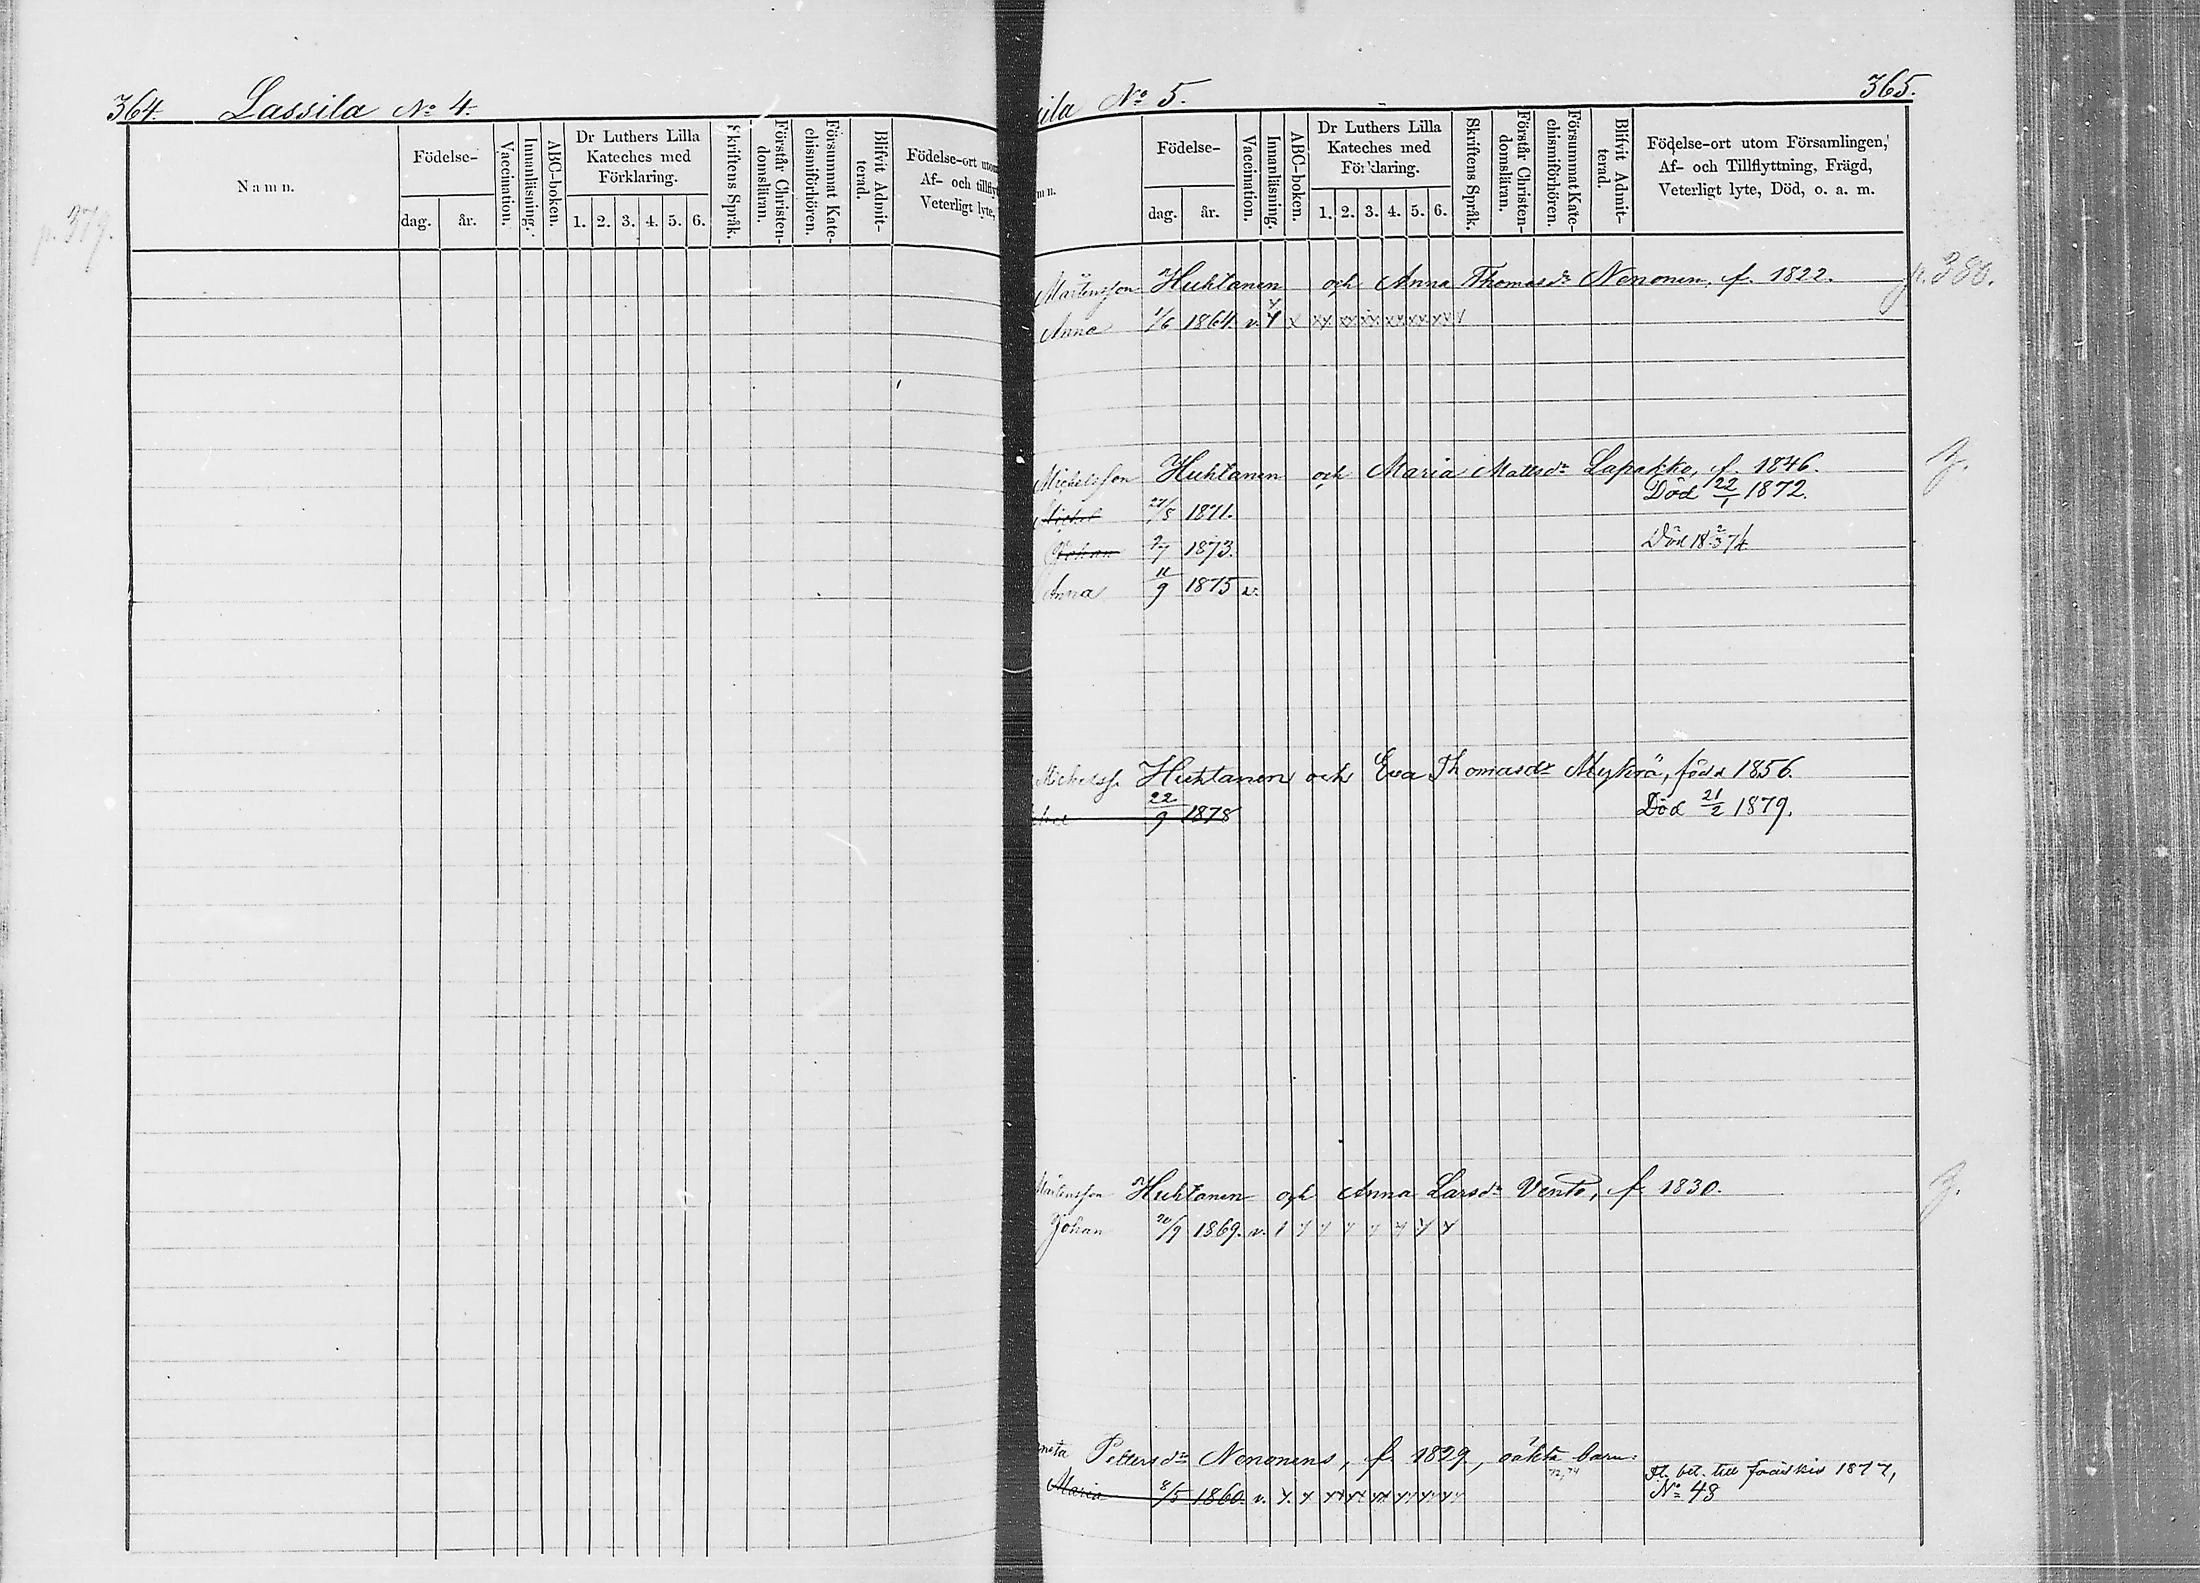 364. Lassila No 4.
p. 379.
Namn.
Födelse-
dag. år.
Vaccination.
Innanläsning.
ABC-boken.
Dr Luthers Lilla
Kateches med
Förklaring.
1. 2. 3. 4. 5. 6.
Skriftens Språk.
Förstår Christen-
domsläran.
Försummat Kate-
chismiförhören.
Blifvit Admit-
terad.
Födelse-ort utom
Af- och tillfly
Veterligt lyte,
ila No 5.
365.
m n.
Födelse-
dag. år.
Vaccination.
Innanläsning.
ABC-boken.
Dr Luthers Lilla
Kateches med
Förklaring.
1. 2. 3. 4. 5. 6.
Skriftens Språk.
Förstår Christen-
domsläran.
Försummat Kate-
chismiförhören.
Blifvit Admit-
terad.
Födelse-ort utom Församlingen,
Af- och Tillflyttning, Frägd,
Veterligt lyte, Död, o. a. m.
Mårtensson Huhtanen och Anna Thomasdr Nenonen, f. 1822. p. 380.
Anna 1/6 1864. v.
Michelsson Huhtanen och Maria Mattsdr Lapakko, f. 1846.
Michel 27/8 1871. Död 22/1 1872.
Johan 9/7 1873. Död 18 2/3 74
Anna 11/9 1875 v.
Michelss. Huhtanen och Eva Thomasdr Mykrä, född 1856.
22/9 1878 Död 21/2 1879.
Mårtensson Huhtanen och Anna Larsdr Vento, f. 1830.
Johan 20/9 1869. v.
neta Pettersdr Nenonens, f. 1829, oäkta barn:
72, 74
Maria 8/5 1860. v. Fl. bet. till 1877,
No 48